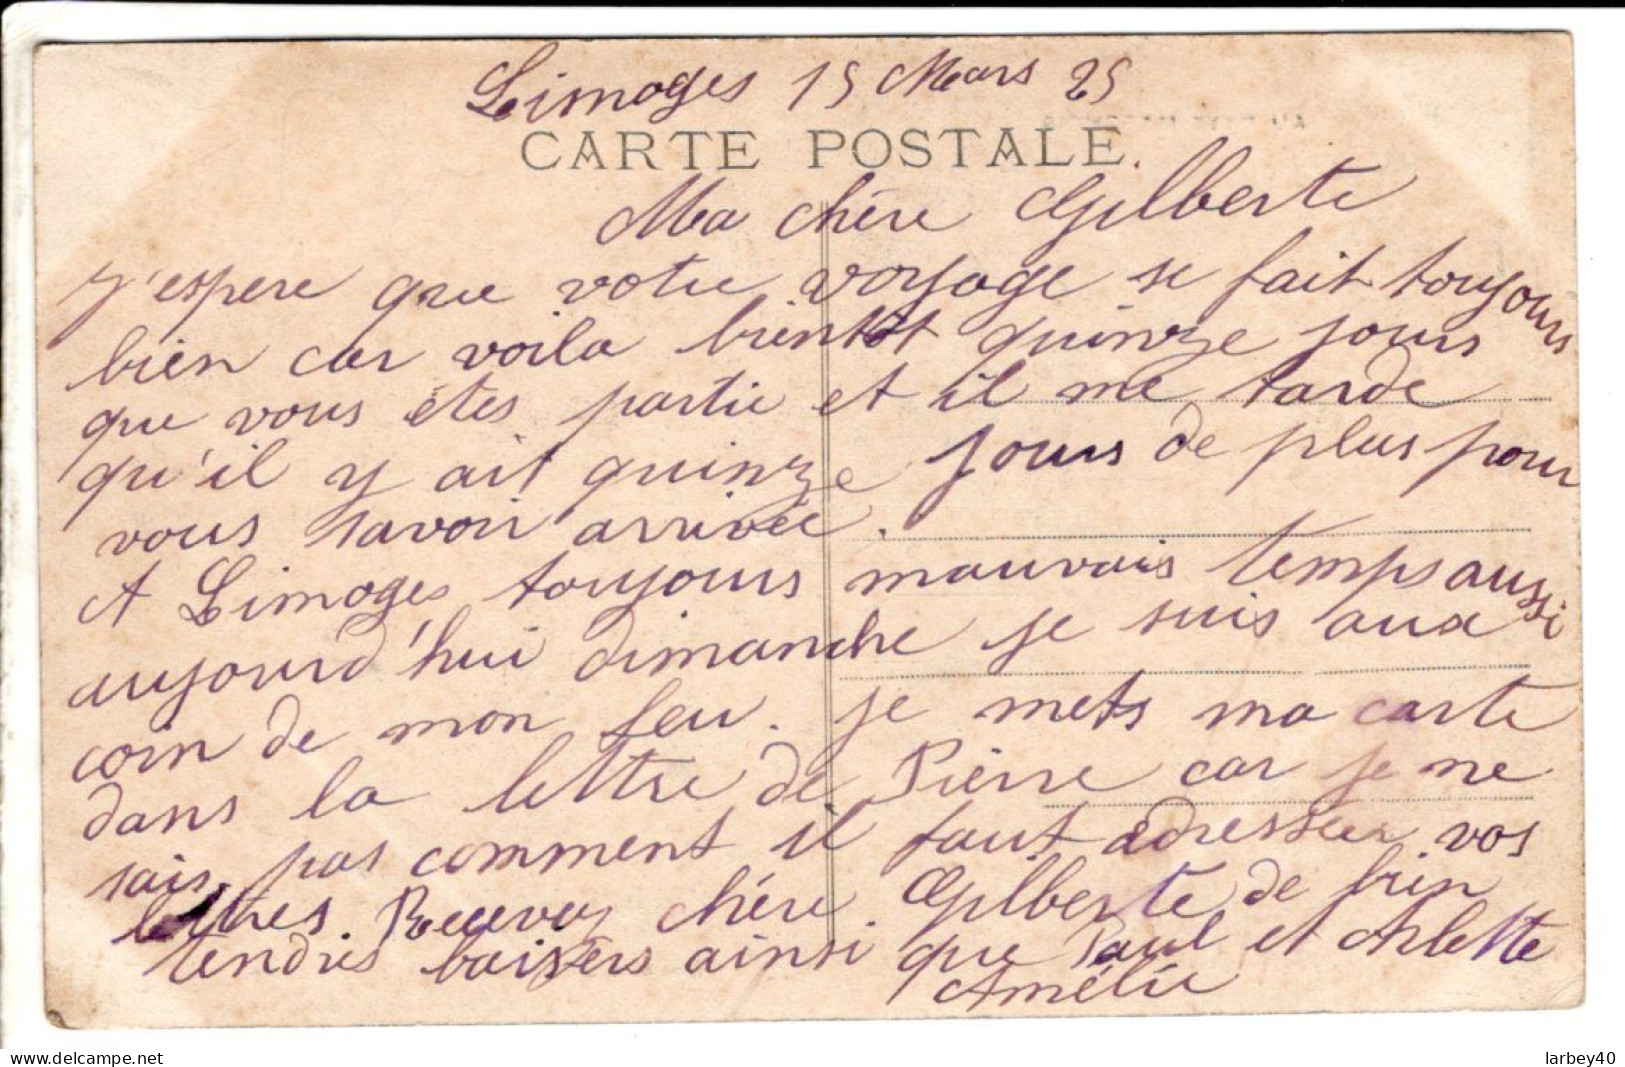 Limoges 15 Mars 25
CARTE POSTALE.
Ma chère Gilberte
J'espere que votre voyage se fait toujours
bien car voila bientot quinze jours
que vous êtes partie et il me tarde
qu'il y ait quinze jours de plus pour
vous savoir arrivée.
A Limoges toujours mauvais temps aussi
aujourd'hui dimanche je suis aux
coin de mon feu. je mets ma carte
dans la lettre de Pierre car je ne
sais pas comment il faut adresser vos
lettres. Recevez chère Gilberte de bien
tendres baisers ainsi que Paul et Arlette
Amélie
delcampe.net
larbey40